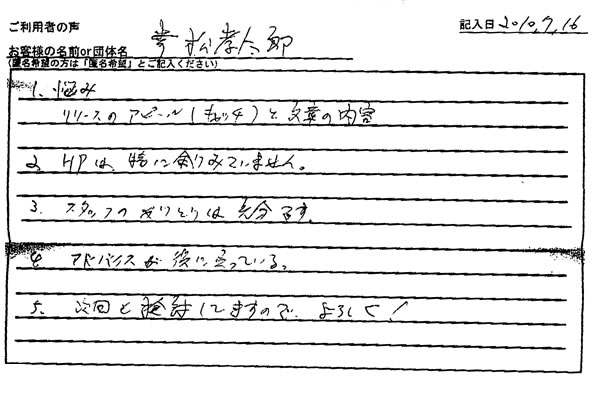 ご利用者の声
記入日 2010,7,16
お客様の名前or団体名 幸松孝太郎
(匿名希望の方は「匿名希望」とご記入ください)
1. 悩み
リリースのアピール(キャッチ)と文章の内容
2. HPは、特に余りみていません。
3. スタッフのやりとりは充分です。
4. アドバイスが役に立っている。
5. 次回も検討してますので、よろしく!